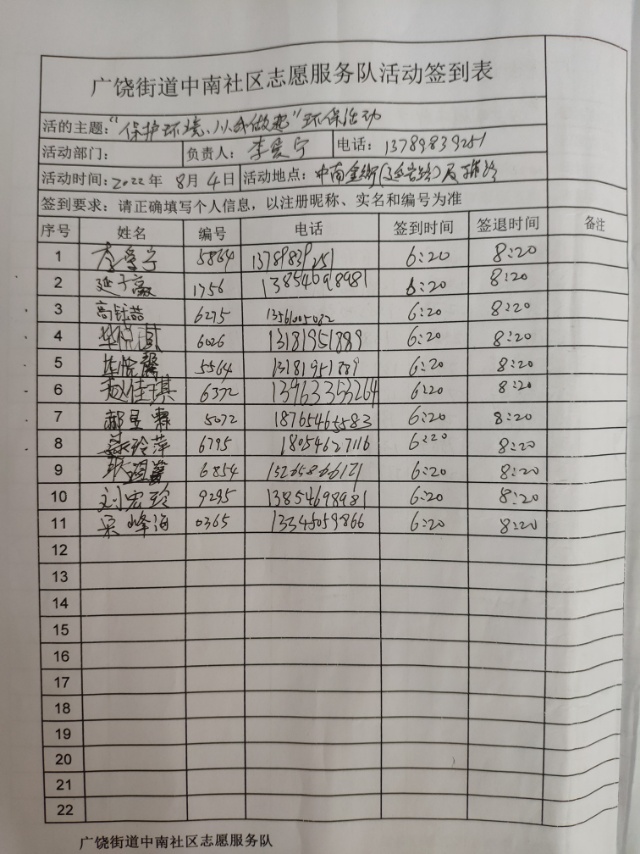 广饶街道中南社区志愿服务队活动签到表
活的主题:“保护环境、从我做起”环保活动
活动部门: 负责人: 李爱宁 电话: 13789839251
活动时间:2022年 8月4日 活动地点: 中南金街
签到要求:请正确填写个人信息,以注册昵称、实名和编号为准
序号 姓名 编号 电话 签到时间 签退时间 备注
1 5864 13789839251 6:20 8:20
2 延子嬴 1756 13854698981 6:20 8:20
3 高钰喆 6275 13561005032 6:20 8:20
4 6026 13181951889 6:20 8:20
5 5564 13181951889 6:20 8:20
6 赵佳琪 6372 13963353264 6:20 8:20
7 5072 18765465583 6:20 8:20
8 玲萍 6795 18054627116 6:20 8:20
9 6854 15265866121 6:20 8:20
10 刘宏玲 9295 13854698981 6:20 8:20
11 峰海 0365 13345059866 6:20 8:20
12
13
14
15
16
17
18
19
20
21
22
广饶街道中南社区志愿服务队